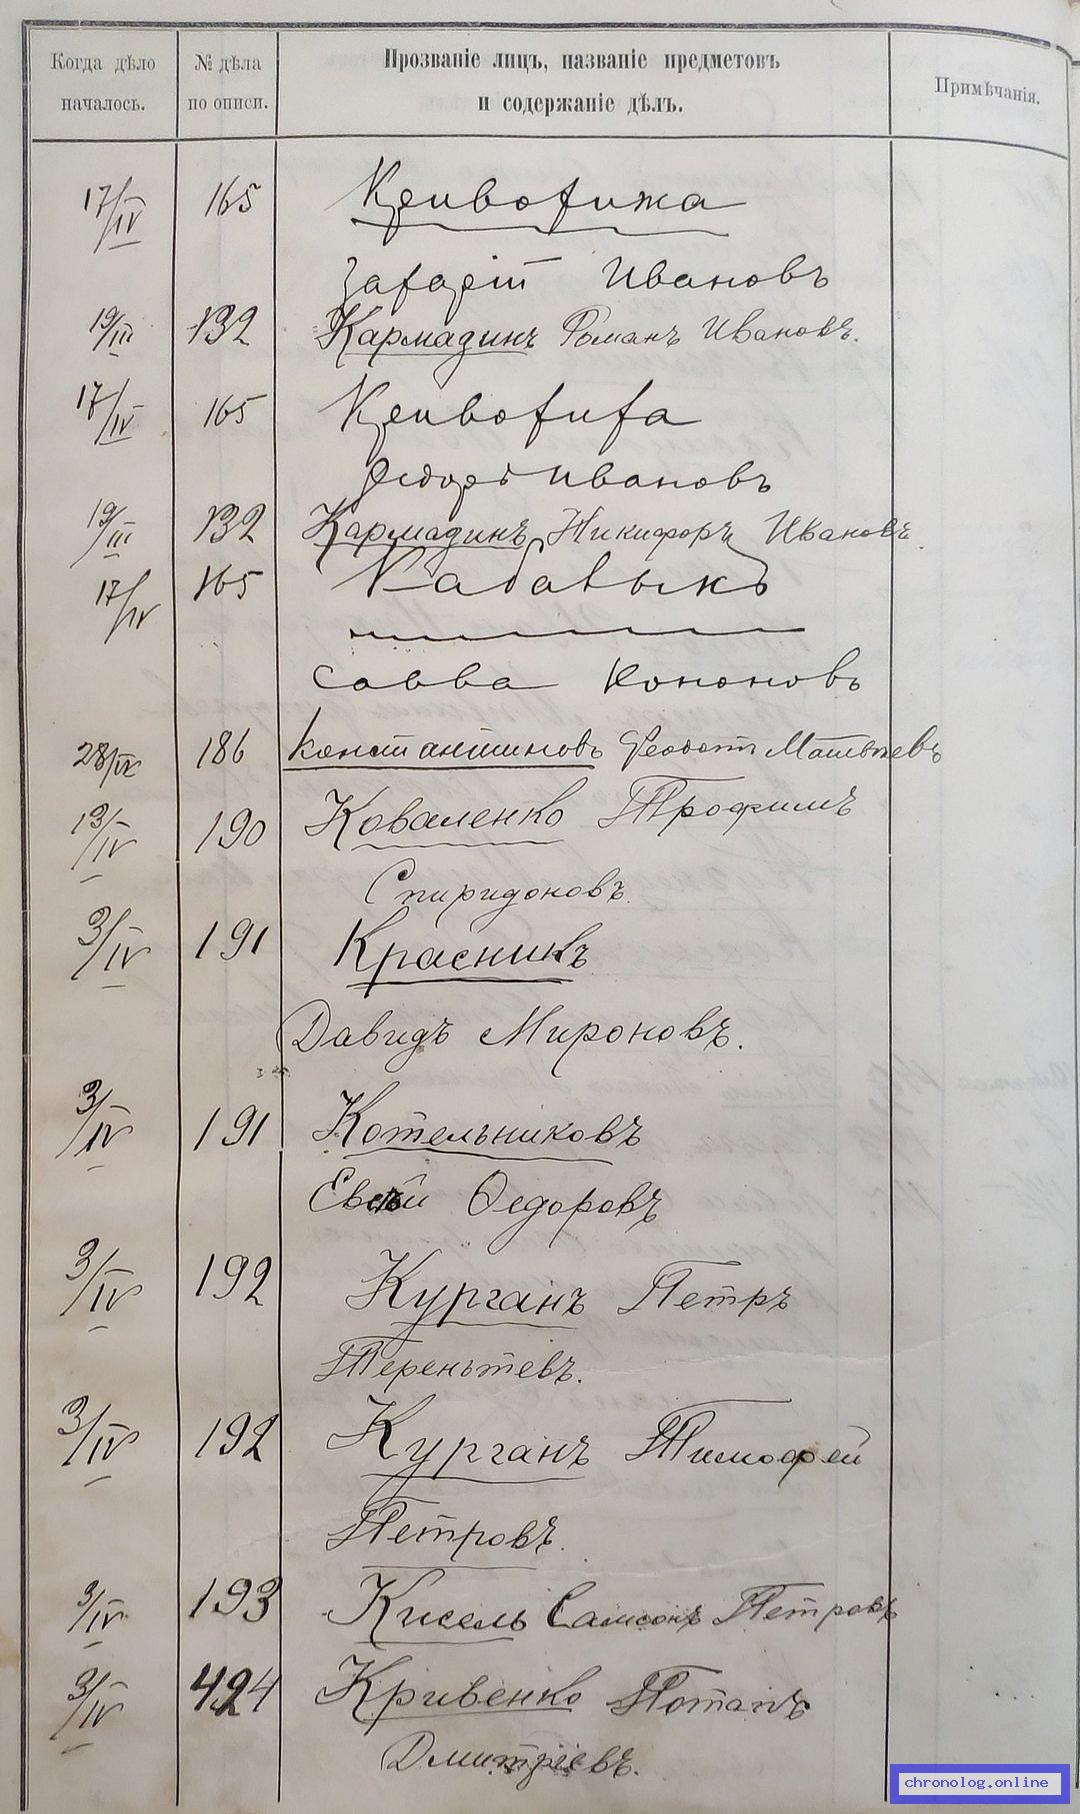 Когда дѣло началось.
№ дѣла по описи.
Прозваніе лицъ, названіе предметовъ и содержаніе дѣлъ.
Примѣчанія.
17/IV 165 Кривохижа
Захарій Ивановъ
19/III 132 Кармадинъ Романъ Ивановъ.
17/IV 165
Ѳедоръ Ивановъ
19/III 132 Кармадинъ Никифоръ Ивановъ.
17/IV 165
Савва Кононовъ
28/IV 186 Константиновъ Феодот Матвѣевъ
13/IV 190 Коваленко Трофимъ
Спиридоновъ.
3/IV 191 Красникъ
Давидъ Мироновъ.
3/IV 191 Котельниковъ
Ѳедоровъ
3/IV 192 Курганъ Петръ
Терентьевъ.
3/IV 192 Курганъ Тимофей
Петровъ.
3/IV 193 Кисель Самсонъ Петровъ
3/IV 424 Кривенко Потапъ
Дмитріевъ.
chronolog.online